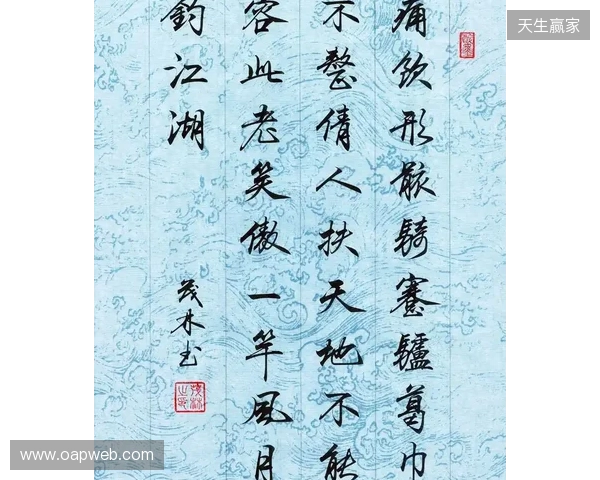 痛飲形骸騎蹇驢葛巾
不整倩人扶天地不能
容此老笑傲一竿風月
釣江湖
茂林书
天生赢家
www.oapweb.com